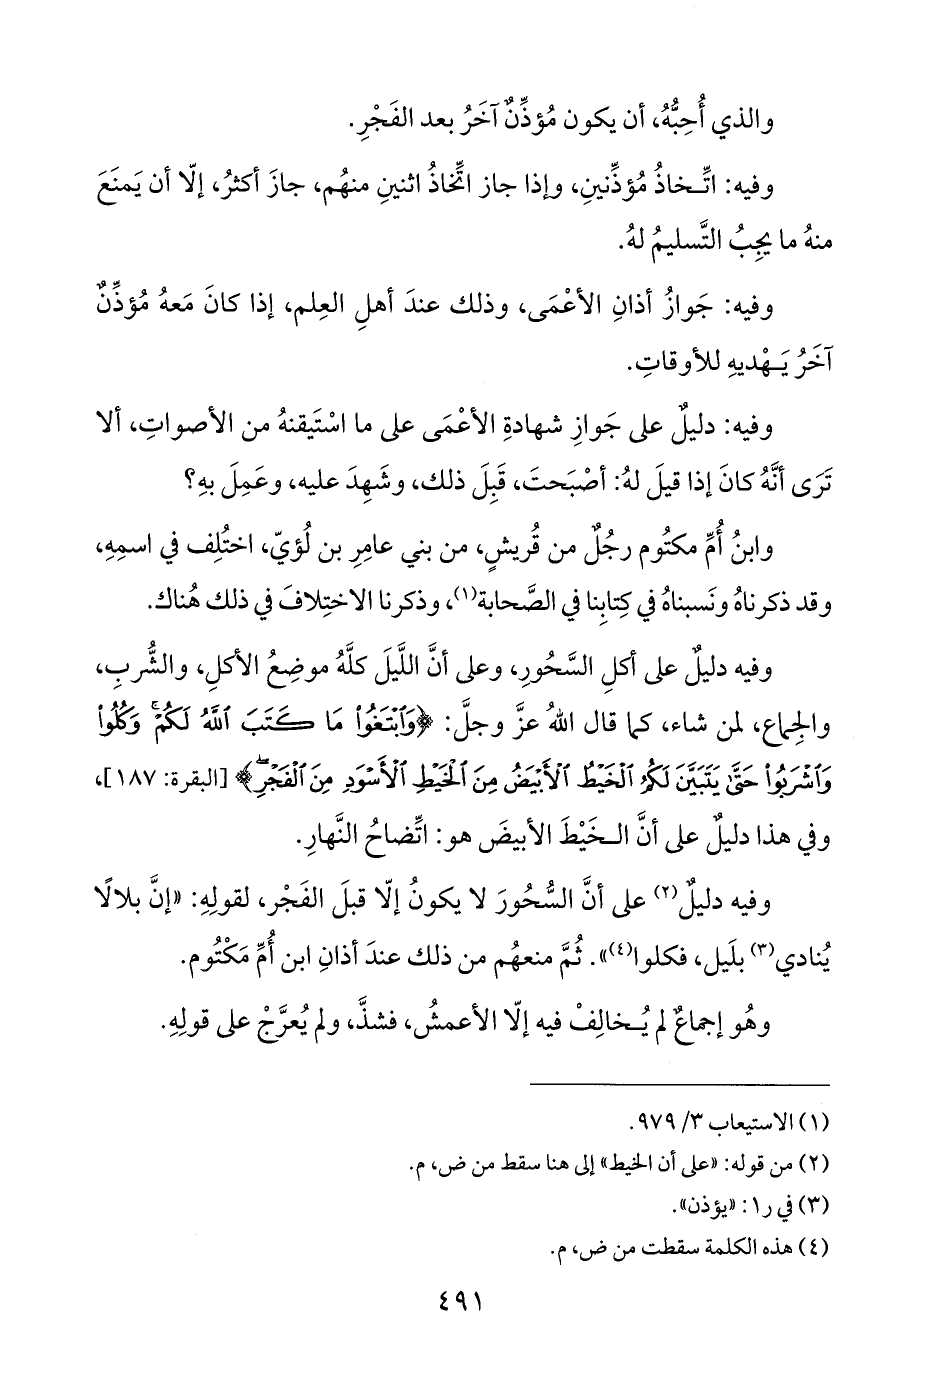 والذي أُحِبُّهُ، أن يكون مُؤذِّنٌ آخَرُ بعد الفَجْرِ.
وفيه: اتِّخاذُ مُؤذِّنينِ، وإذا جاز اتِّخاذُ اثنينِ منهُم، جازَ أكثرُ، إلّا أن يَمنَعَ
منهُ ما يجِبُ التَّسليمُ لهُ.
وفيه: جَوازُ أذانِ الأعْمَى، وذلك عندَ أهلِ العِلم، إذا كانَ مَعهُ مُؤذِّنٌ
آخَرُ يَهْديهِ للأوقاتِ.
وفيه: دليلٌ على جَوازِ شهادةِ الأعْمَى على ما اسْتَيقنهُ من الأصواتِ، ألا
تَرَى أنَّهُ كانَ إذا قيلَ لهُ: أصْبَحتَ، قَبِلَ ذلك، وشَهِدَ عليه، وعَمِلَ بهِ؟
وابنُ أُمِّ مكتُوم رجُلٌ من قُريشٍ، من بني عامِرِ بن لُؤيّ، اختُلِف في اسمِهِ،
وقد ذكرناهُ ونَسبناهُ في كِتابِنا في الصَّحابة(١)، وذكرنا الاختِلافَ في ذلك هُناك.
وفيه دليلٌ على أكلِ السَّحُورِ، وعلى أنَّ اللَّيلَ كلَّهُ موضِعُ الأكلِ، والشُّربِ،
والجِماع، لمن شاء، كما قال اللهُ عزَّ وجلَّ: ﴿وَٱبْتَغُوا۟ مَا كَتَبَ ٱللَّهُ لَكُمْ ۚ وَكُلُوا۟
وَٱشْرَبُوا۟ حَتَّىٰ يَتَبَيَّنَ لَكُمُ ٱلْخَيْطُ ٱلْأَبْيَضُ مِنَ ٱلْخَيْطِ ٱلْأَسْوَدِ مِنَ ٱلْفَجْرِ ۖ﴾ [البقرة: ١٨٧]،
وفي هذا دليلٌ على أنَّ الخَيْطَ الأبيضَ هو: اتِّضاحُ النَّهارِ.
وفيه دليلٌ(٢) على أنَّ السُّحُورَ لا يكونُ إلّا قبلَ الفَجْر، لقولِهِ: «إنَّ بلالًا
يُنادي(٣) بلَيل، فكلوا(٤)». ثُمَّ منعهُم من ذلك عندَ أذانِ ابن أُمِّ مَكْتُوم.
وهُو إجماعٌ لم يُخالِفْ فيه إلّا الأعمشُ، فشذَّ، ولم يُعرَّجْ على قولِهِ.
(١) الاستيعاب ٣/ ٩٧٩.
(٢) من قوله: «على أن الخيط» إلى هنا سقط من ض، م.
(٣) في ر١: «يؤذن».
(٤) هذه الكلمة سقطت من ض، م.
٤٩١